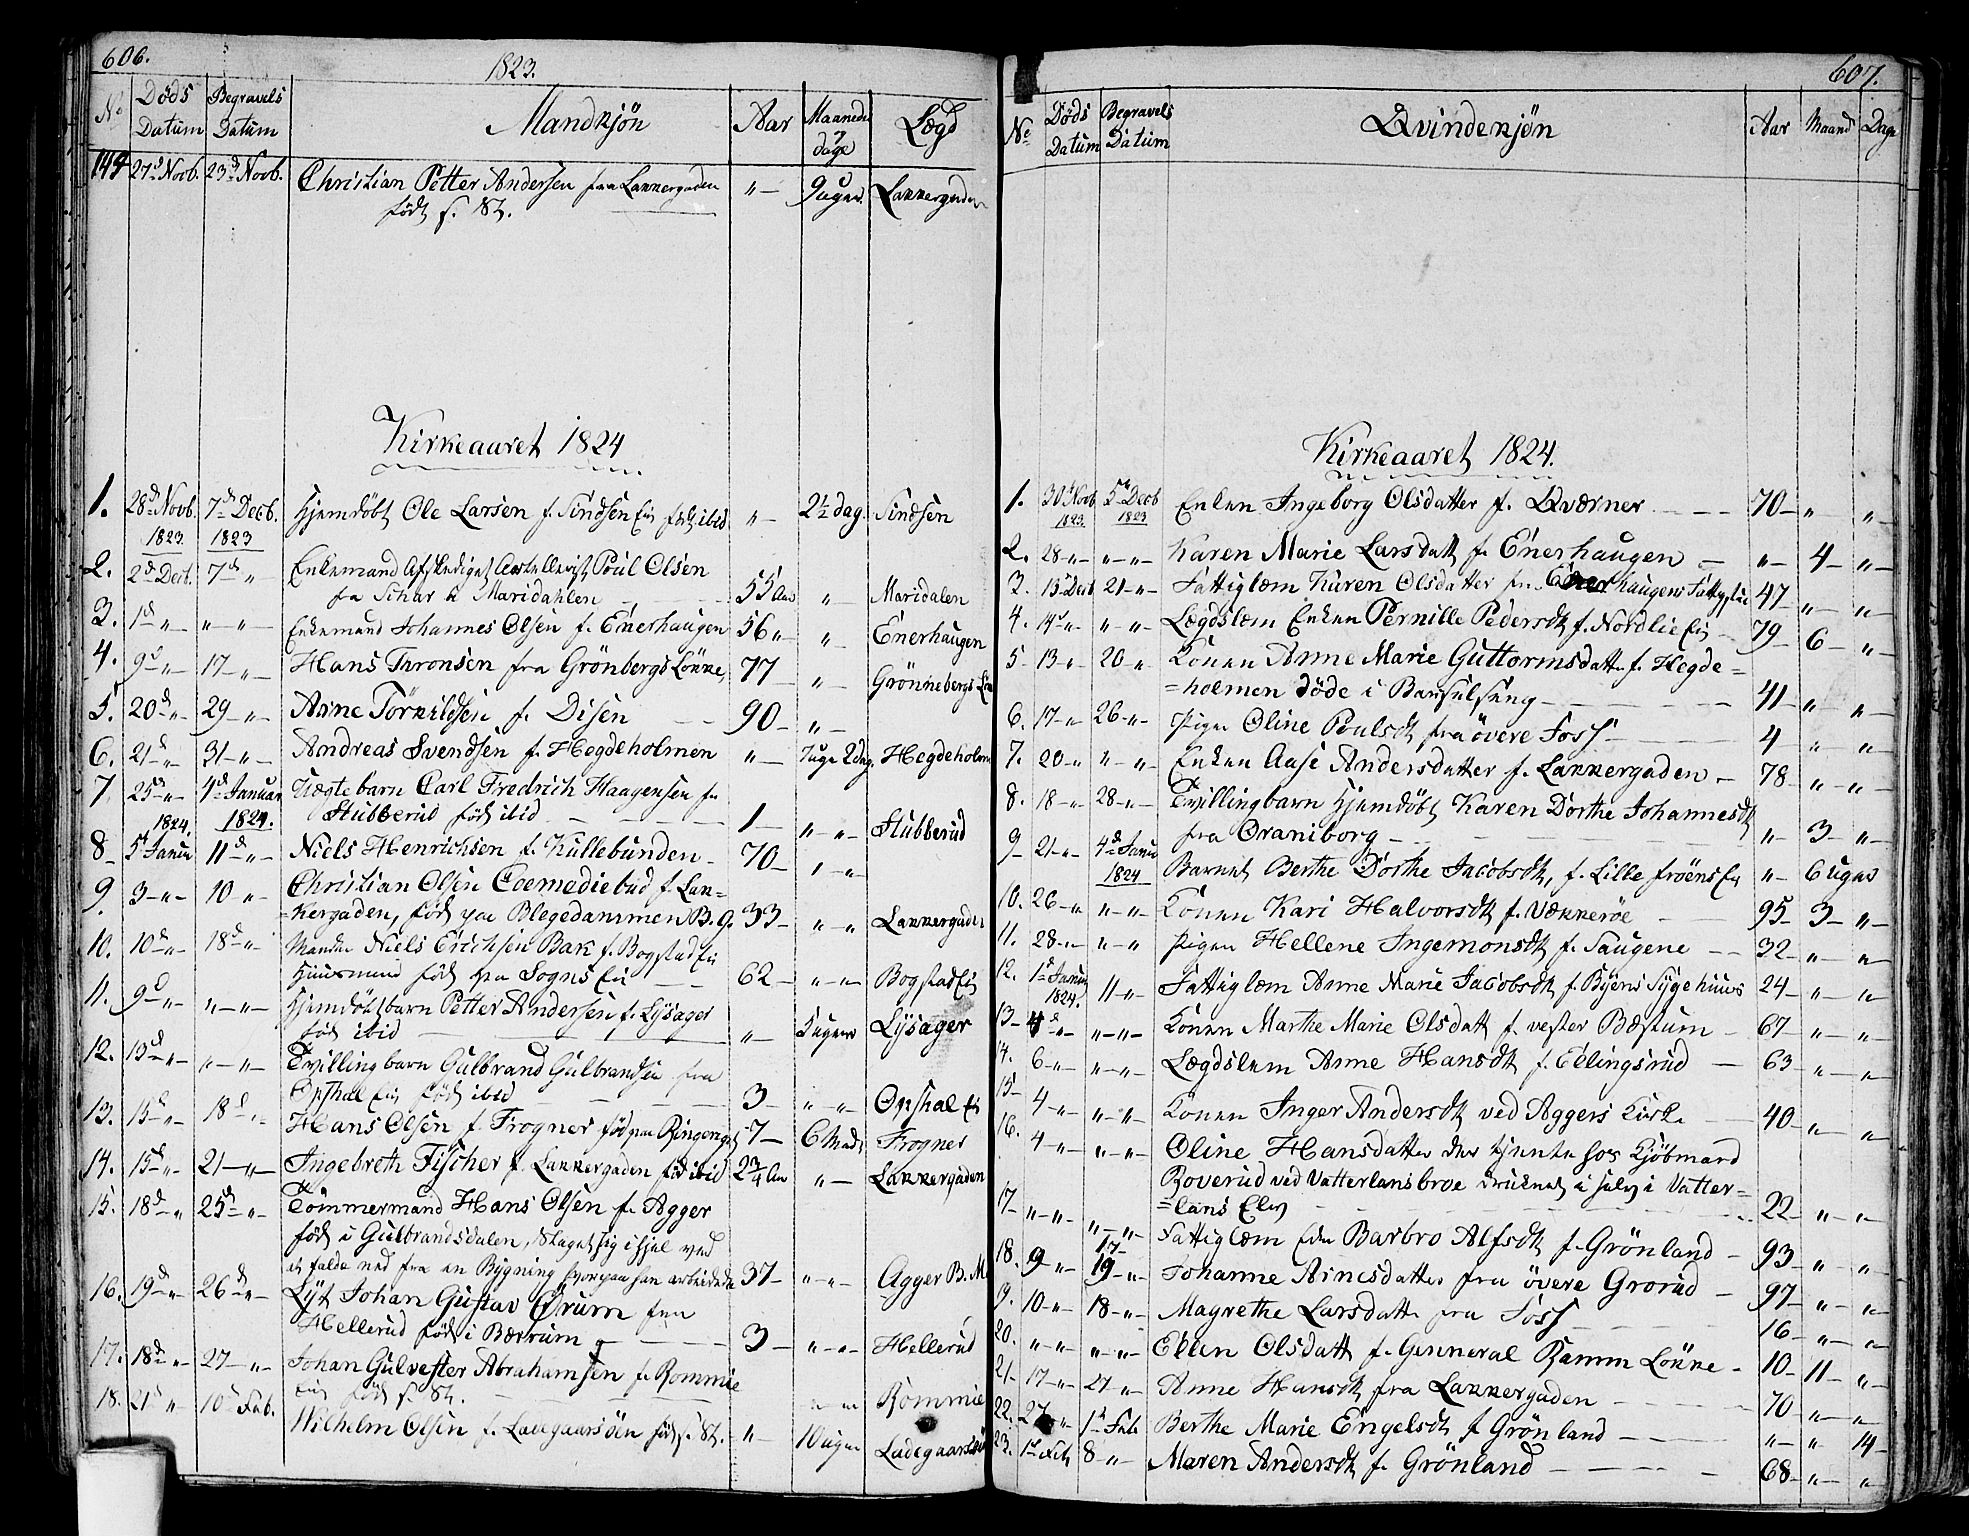 606.
1823.
No Döds Datum Begravels Datum Mandkjön Aar Maaneder og dage Lægd
144 27d Novb. 23d Novb. Christian Petter Andersen fra Lakkergaden "— 9 uger. Lakkergaden
född s. St.
Kirkeaaret 1824
1. 28d Novb. 7d Decb. Hjemdöbt Ole Larsen f. Sindsen Eie född ibid "— 2½ dag. Sindsen
1823 1823
2. 2d Decb. 7d " Enkemand Afskediget Artellerist Poul Olsen
fra Schar i Maridahlen — 55 Aar " Maridalen
3. 1d "— "— "— Enkemand Johannes Olsen f. Enerhaugen 56 "— " Enerhaugen
4. 9d "— 17— "— Hans Thronsen fra Grönbergs Lökke, 77— "— Grönnebergs
5. 20d "— 29— "— Arne Törkildsen f. Disen 90— "—
6. 21d "— 31— "— Andreas Svendsen f. Hegdeholmen "— 7 uge 2 dag. Hegdeholm
7. 25d "— 4d Januar Uægte barn Carl Fredrich Haagensen fra
1824. 1824. Stubberud född ibid — 1— "— "— Stubberud
8— 5t Janu 11d "— Niels Henrichsen f. Kullebunden— 70— "— "—
9. 3— "— 10 "— Christian Olsen Coemediebud f. Lak-
=kergaden, född paa Blegedammen B. G. 33— "— "— Lakkergade
10. 10d "— 18d "— Manden Niels Erichsen Bak f. Bogstad Eie
Huusmand född paa Sogns Eie — 62— "— "— Bogstad Eie
11. 9d "— "— "— Hjemdöbt barn Petter Andersen f. Lysager
född ibid — "— 5 uger Lysager
12. 13d "— "— "— Tvillingbarn Gulbrand Gulbrandsen fra
Opshal Eie född ibid 3— "— "— Opshal Ei
13. 15d "— 18d "— Hans Olsen f. Frogner född paa 7— 6 Frogner
14. 15d "— 21— "— Ingebreth Fischer f. Lakkergaden född ibid 2¾ Aar "— Lakkergaden
15. 18d " 25d "— Tömmermand Hans Olsen f. Agger
född i Gulbrandsdalen, Slaget sig ihjel ved
at falde ned fra en Bygning hvorpaa han arbeidede 37— "— "— Agger B. M
16. 19d "— 26d "— Lyt Johan Gustav Ørum fra
Hellerud född i Bærrum — 3— "— "— Hellerud
17. 18d "— 27— "— Johan Gulvester Abrahamsen f. Rommie
Eie född s. St. "— "— Rommie
18. 21d "— 10d Feb. Wilhelm Olsen f. Ladegaarsöen född s. St. "— 10 uger Ladegaars
607.
No Döds Datum Begravels Datum Qvindekjön Aar Maand Dage
Kirkeaaret 1824.
1. 30t Novb 5t Decb Enken Ingeborg Olsdatter f. Qværner — 70— " "—
1823 1823
2. 28— "— "— "— Karen Marie Larsdatt f. Enerhaugen — "— 4— "—
3. 15d Decb 21— "— Fattiglem Karen Olsdatter fra Enerhaugens 47— "— "—
4. 14d "— "— "— Lægdslem Enken Pernille Pedersdt f. Nordlie Eie— 79— 6— "—
5— 13— " 20— " Konen Anne Marie Guttormsdatt. f. Hegde=
=holmen döde i Barselseng — 41— "— "—
6. 17— " 26— "— Pigen Oline Poulsdt fra övere Foss — 4— " "
7. 20— " "— "— Enken Aase Andersdatter f. Lakkergaden — 78— "— "—
8. 18— " 28— "— Tvillingbarn Hjemdöbt Karen Dorthe Johannesdt
fra Oraniborg — "— 3— "—
9— 21— "— 4d Janu Barnet Berthe Dorthe Jacobsdt, f. Lille Fröens Eie "— 6 uger
1824
10. 26— " "— "— Konen Kari Halvorsdt f. Vækkeröe 95— 3— "—
11. 28— "— "— " Pigen Hellene Ingemonsdt f. Saugene — 32— "— "—
12. 1d Januar 11— "— Fattiglem Anne Marie Jacobsdt f. Byens Sygehuus 24— "— "—
1824.
13— 4d "— "— "— Konen Marthe Marie Olsdatt f. vester Bæstum — 67— "— "—
14. 6— "— "— "— Lægdslem Anne Hansdt f. Ellingsrud — 63— "— "—
15— 4— "— "— "— Konen Inger Andersdt ved Aggers Kirke — 40— "— "—
16. 4— "— "— "— Oline Hansdatter der tjente hos Kjöbmand
Roverud ved Vatterlansbroe druknet i Vatter=
=lans Elv — 22— "— "—
17— "— "— "— "— Fattiglem Barbro Alfsdt f. Grönland — 93— "— "—
17—
18. 9— " 19— "— Johanne Arnesdatter fra övere Grorud — 97— "— "—
9. 10— "— 18— "— Magrethe Larsdatt fra Foss — 16— "— "—
20. "— "— "— "— Ellen Olsdatt f. Genneral Ramm Lökke— 10— 11— "—
21— 17— "— 27— "— Anne Hansdt fra Lakkergaden — 70— "— "—
22. 27 "— 1d Feb Berthe Marie Engelsdt f Grönland — "— "— 14—
23. 1d Feb 8— "— Maren Andersdt f. Grönland — 68— "— "—